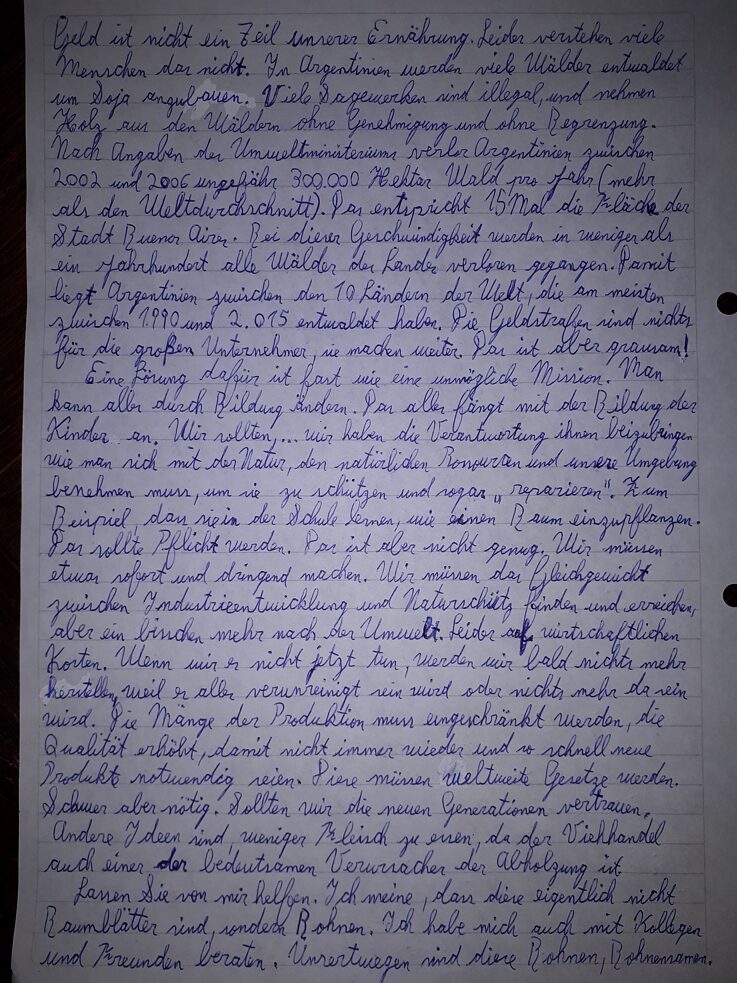 Geld ist nicht ein Teil unserer Ernährung. Leider verstehen viele
Menschen das nicht. In Argentinien werden viele Wälder entwaldet
um Soja anzubauen. Viele Sagewerken sind illegal, und nehmen
Holz aus den Wäldern ohne Genehmigung und ohne Begrenzung.
Nach Angaben des Umweltministeriums verlor Argentinien zwischen
2002 und 2006 ungefähr 300.000 Hektar Wald pro Jahr (mehr
als den Weltdurchschnitt). Das entspricht 15 Mal die Fläche der
Stadt Buenos Aires. Bei dieser Geschwindigkeit werden in weniger als
ein Jahrhundert alle Wälder des Landes verloren gegangen. Damit
liegt Argentinien zwischen den 10 Ländern der Welt, die am meisten
zwischen 1.990 und 2.015 entwaldet haben. Die Geldstrafen sind nichts
für die großen Unternehmer, sie machen weiter. Das ist aber grausam!
Eine Lösung dafür ist fast wie eine unmögliche Mission. Man
kann alles durch Bildung ändern. Das alles fängt mit der Bildung der
Kinder an. Wir sollten,... wir haben die Verantwortung ihnen beizubringen
wie man sich mit der Natur, den natürlichen Ressourcen und unsere Umgebung
benehmen muss, um sie zu schützen und sogar „reparieren". Zum
Beispiel, dass sie in der Schule lernen, wie einen Baum einzupflanzen.
Das sollte Pflicht werden. Das ist aber nicht genug. Wir müssen
etwas sofort und dringend machen. Wir müssen das Gleichgewicht
zwischen Industrieentwicklung und Naturschütz finden und erreichen,
aber ein bisschen mehr nach der Umwelt. Leider auf wirtschaftlichen
Kosten. Wenn wir es nicht jetzt tun, werden wir bald nichts mehr
herstellen, weil es alles verunreinigt sein wird oder nichts mehr da sein
wird. Die Mänge der Produktion muss eingeschränkt werden, die
Qualität erhöht, damit nicht immer wieder und so schnell neue
Produkte notwendig seien. Diese müssen weltweite Gesetze werden.
Schwer aber nötig. Sollten wir die neuen Generationen vertrauen.
Andere Ideen sind, weniger Fleisch zu essen, da der Viehhandel
auch einer der bedeutsamen Verursacher der Abholzung ist
Lassen Sie von mir helfen. Ich meine, dass diese eigentlich nicht
Baumblätter sind, sondern Bohnen. Ich habe mich auch mit Kollegen
und Freunden beraten. Unsertwegen sind diese Bohnen, Bohnensamen.